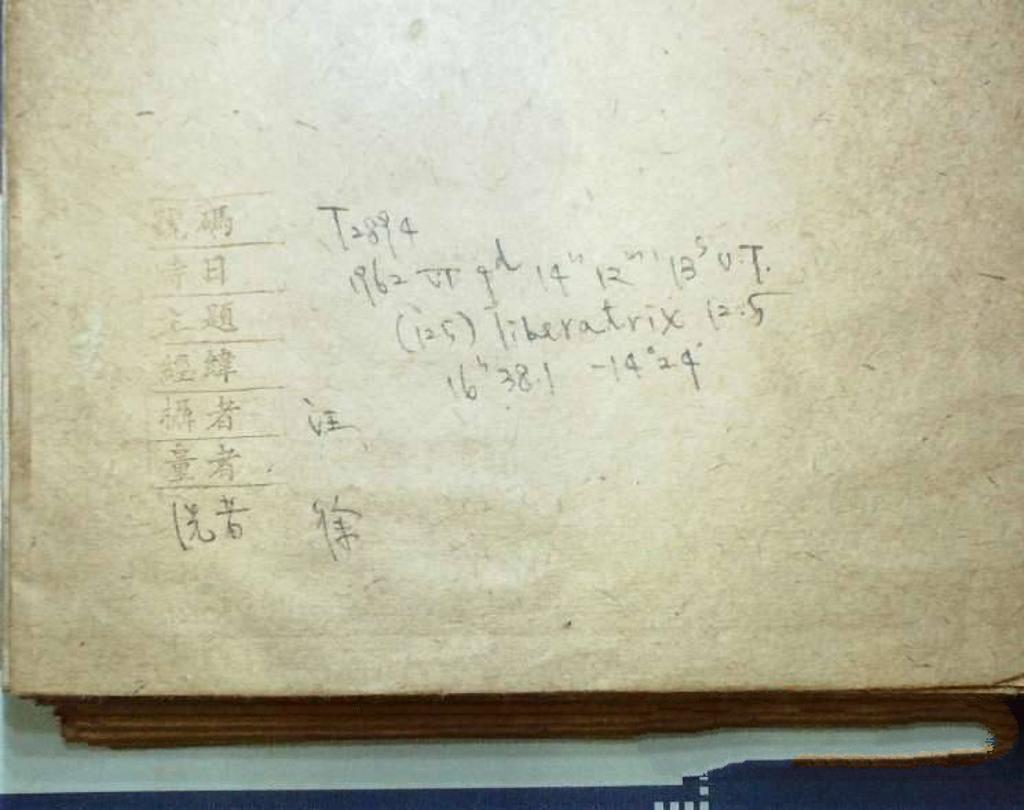 號碼 T2894
時日 1962 VI 9d 14h 12m 13s U.T.
主題 (125) liberatrix 12.5
經緯 16h 38.1 -14°24'
攝者 汪
量者
洗者 徐